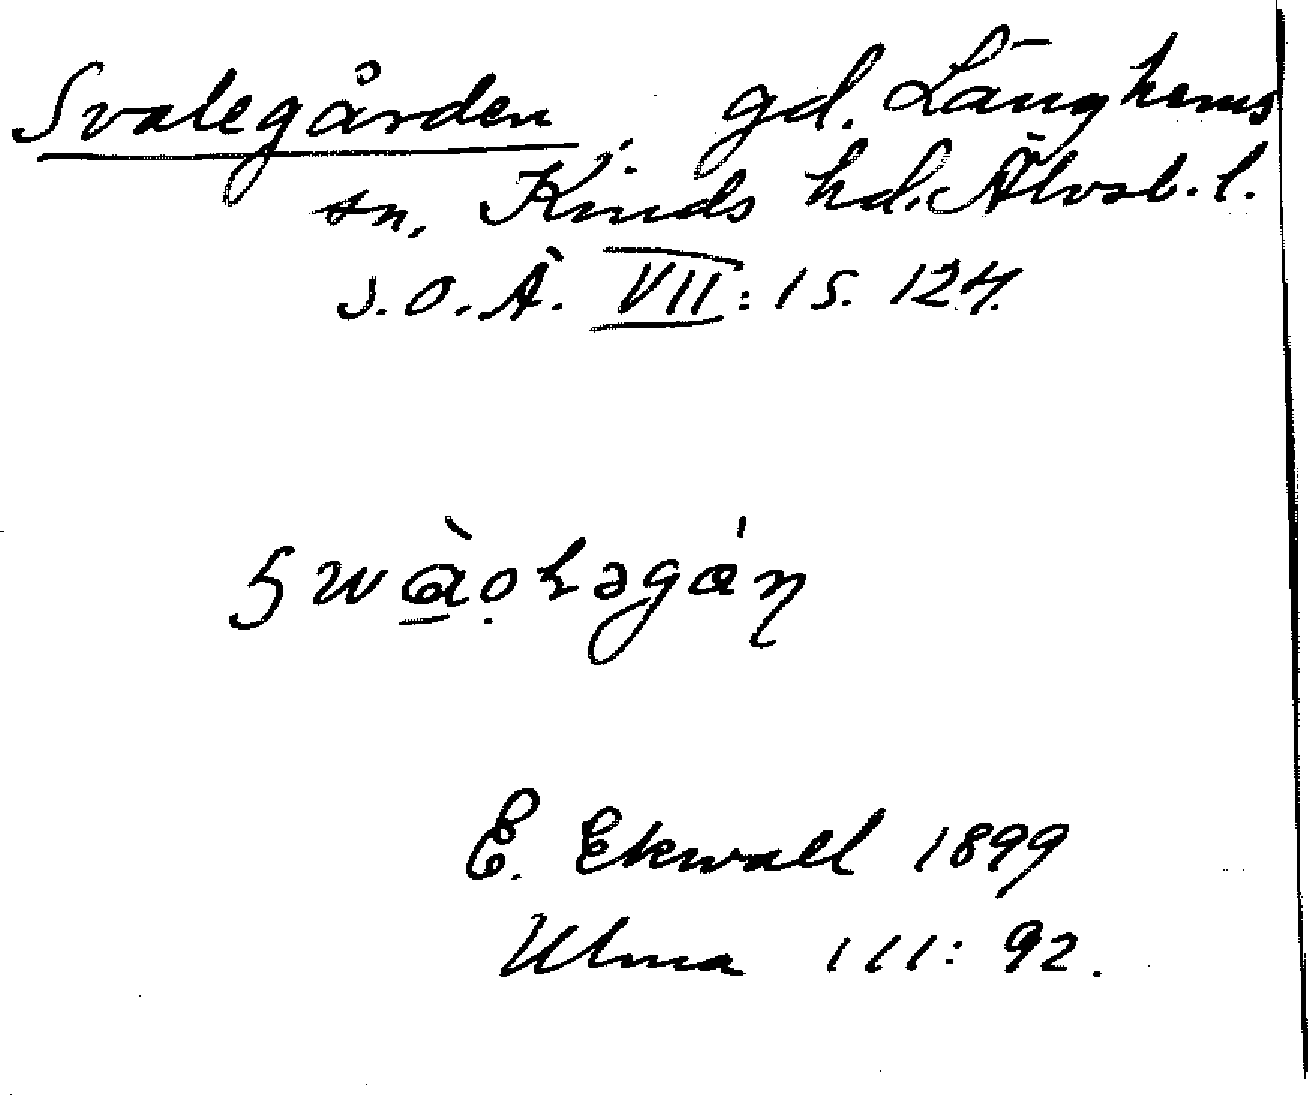 Svalegården, gd. Länghems
sn. Kinds hd. Älvsb. l.
S.O.Ä. VII: 1 s. 124.
E. Ekwall 1899
Ulma 111: 92.